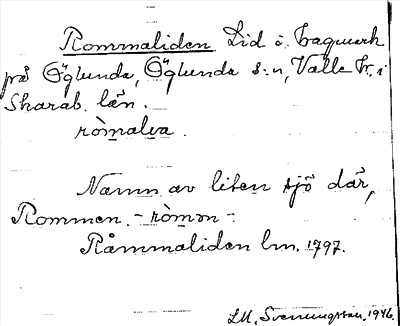 Rommaliden Lid i hagmark
på Öglunda, Öglunda s:n, Valle hr, i
Skarab. län.
ròmalia.
Namn av liten sjö där,
Rommen. - ròmən -
Råmmaliden lm. 1797.
LM, Svenungsson, 1946.